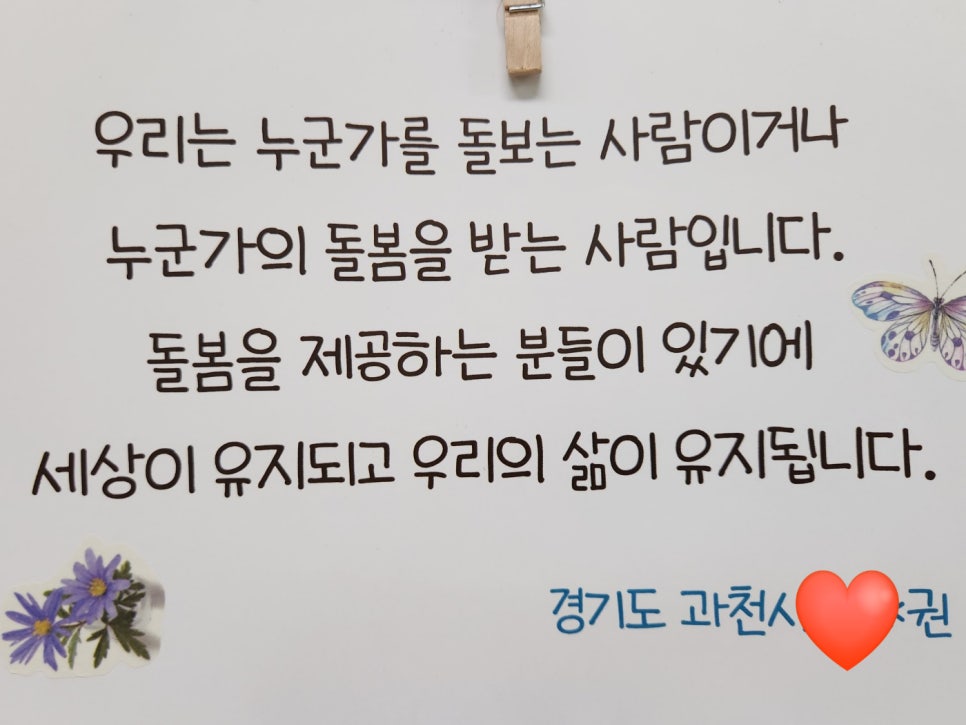 우리는 누군가를 돌보는 사람이거나
누군가의 돌봄을 받는 사람입니다.
돌봄을 제공하는 분들이 있기에
세상이 유지되고 우리의 삶이 유지됩니다.
경기도